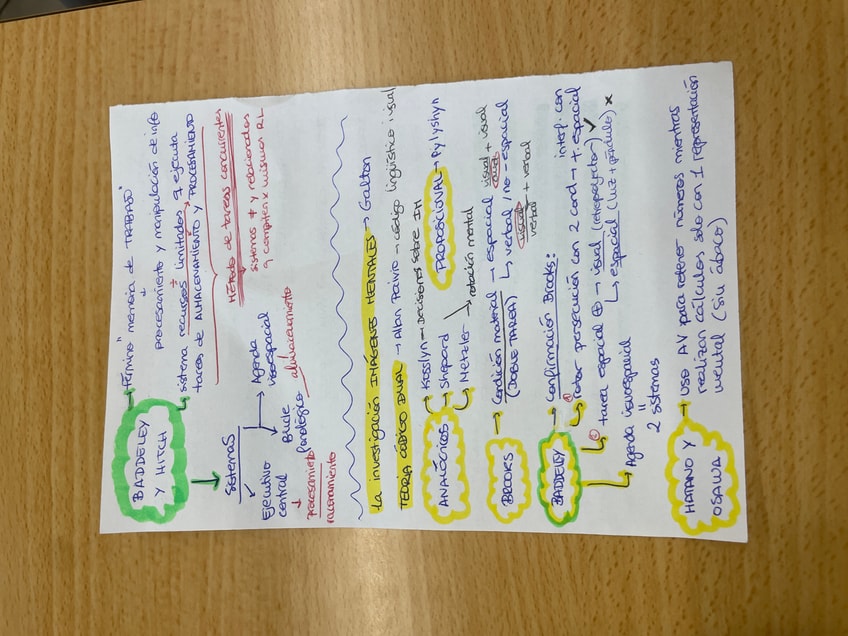 BADDELEY Y HITCH → término "memoria de TRABAJO"
↓
procesamiento y manipulación de info
↳ sistema recursos limitados q ejecuta
tareas de ALMACENAMIENTO y PROCESAMIENTO
Método de tareas concurrentes
sistemas ≠ y relacionados
q compiten x mismos RL
Sistemas
Ejecutivo central
↓
procesamiento
razonamiento
Agenda visoespacial
Bucle fonológico
almacenamiento
La investigación IMÁGENES MENTALES → Galton
TEORÍA CÓDIGO DUAL → Allan Paivio → código lingüístico, visual
ANALÓGICOS → Kosslyn → Decisiones sobre IM
→ Shepard
↳ Metzler → rotación mental
PROPOSICIONAL → Pylyshyn
BROOKS → Condición material → espacial visual + visual
(DOBLE TAREA) ↳ verbal / no-espacial
visual + verbal
verbal
BADDELEY → Confirmación Brooks:
↳ rotor persecución con 2 cond → t. espacial
interf. con
↳ tarea espacial ⊕ → visual ✓
↳ espacial (luz + péndulo) x
↳ Agenda visuespacial
"
2 sistemas
HATANO Y OSAWA → uso AV para retener números mientras
realizan cálculos solo con 1 representación
mental (sin ábaco)